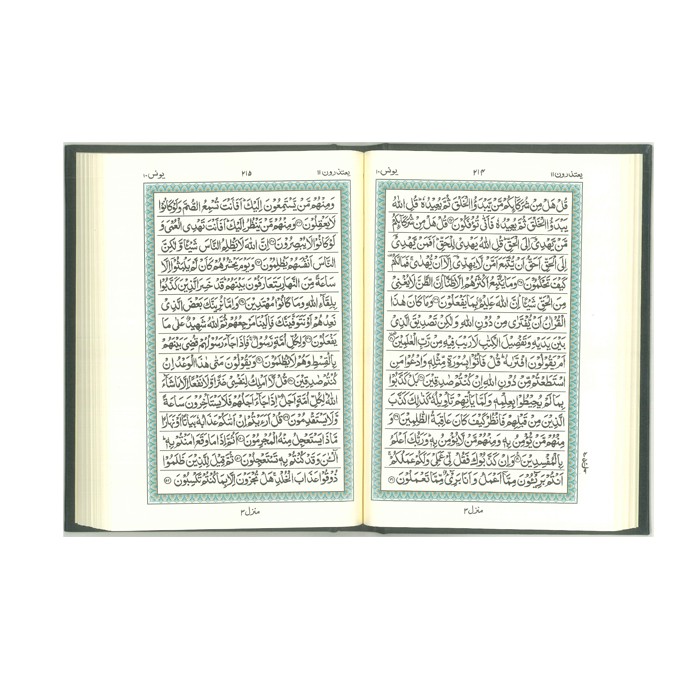 يعتذرون ١١ ٢١٤ يونس ١٠
قُلْ هَلْ مِنْ شُرَكَآئِكُمْ مَّنْ يَّبْدَؤُا الْخَلْقَ ثُمَّ يُعِيْدُهٗ قُلِ اللّٰهُ
يَبْدَؤُا الْخَلْقَ ثُمَّ يُعِيْدُهٗ فَاَنّٰى تُؤْفَكُوْنَ قُلْ هَلْ مِنْ شُرَكَآئِكُمْ
مَّنْ يَّهْدِيْٓ اِلَى الْحَقِّ قُلِ اللّٰهُ يَهْدِيْ لِلْحَقِّ اَفَمَنْ يَّهْدِيْٓ
اِلَى الْحَقِّ اَحَقُّ اَنْ يُّتَّبَعَ اَمَّنْ لَّا يَهِدِّيْٓ اِلَّآ اَنْ يُّهْدٰى فَمَا لَكُمْ
كَيْفَ تَحْكُمُوْنَ وَمَا يَتَّبِعُ اَكْثَرُهُمْ اِلَّا ظَنًّا اِنَّ الظَّنَّ لَا يُغْنِيْ
مِنَ الْحَقِّ شَيْئًا اِنَّ اللّٰهَ عَلِيْمٌ بِمَا يَفْعَلُوْنَ وَمَا كَانَ هٰذَا
الْقُرْاٰنُ اَنْ يُّفْتَرٰى مِنْ دُوْنِ اللّٰهِ وَلٰكِنْ تَصْدِيْقَ الَّذِيْ
بَيْنَ يَدَيْهِ وَتَفْصِيْلَ الْكِتٰبِ لَا رَيْبَ فِيْهِ مِنْ رَّبِّ الْعٰلَمِيْنَ
اَمْ يَقُوْلُوْنَ افْتَرٰىهُ قُلْ فَاْتُوْا بِسُوْرَةٍ مِّثْلِهٖ وَادْعُوْا مَنِ
اسْتَطَعْتُمْ مِّنْ دُوْنِ اللّٰهِ اِنْ كُنْتُمْ صٰدِقِيْنَ بَلْ كَذَّبُوْا
بِمَا لَمْ يُحِيْطُوْا بِعِلْمِهٖ وَلَمَّا يَاْتِهِمْ تَاْوِيْلُهٗ كَذٰلِكَ كَذَّبَ
الَّذِيْنَ مِنْ قَبْلِهِمْ فَانْظُرْ كَيْفَ كَانَ عَاقِبَةُ الظّٰلِمِيْنَ وَ
مِنْهُمْ مَّنْ يُّؤْمِنُ بِهٖ وَمِنْهُمْ مَّنْ لَّا يُؤْمِنُ بِهٖ وَرَبُّكَ اَعْلَمُ
بِالْمُفْسِدِيْنَ وَاِنْ كَذَّبُوْكَ فَقُلْ لِّيْ عَمَلِيْ وَلَكُمْ عَمَلُكُمْ
اَنْتُمْ بَرِيْٓـُٔوْنَ مِمَّآ اَعْمَلُ وَاَنَا بَرِيْٓءٌ مِّمَّا تَعْمَلُوْنَ
منزل ٣
يعتذرون ١١ ٢١٥ يونس ١٠
وَمِنْهُمْ مَّنْ يَّسْتَمِعُوْنَ اِلَيْكَ اَفَاَنْتَ تُسْمِعُ الصُّمَّ وَلَوْ كَانُوْا
لَا يَعْقِلُوْنَ وَمِنْهُمْ مَّنْ يَّنْظُرُ اِلَيْكَ اَفَاَنْتَ تَهْدِي الْعُمْيَ وَ
لَوْ كَانُوْا لَا يُبْصِرُوْنَ اِنَّ اللّٰهَ لَا يَظْلِمُ النَّاسَ شَيْئًا وَّلٰكِنَّ
النَّاسَ اَنْفُسَهُمْ يَظْلِمُوْنَ وَيَوْمَ يَحْشُرُهُمْ كَاَنْ لَّمْ يَلْبَثُوْٓا اِلَّا
سَاعَةً مِّنَ النَّهَارِ يَتَعَارَفُوْنَ بَيْنَهُمْ قَدْ خَسِرَ الَّذِيْنَ كَذَّبُوْا
بِلِقَآءِ اللّٰهِ وَمَا كَانُوْا مُهْتَدِيْنَ وَاِمَّا نُرِيَنَّكَ بَعْضَ الَّذِيْ
نَعِدُهُمْ اَوْ نَتَوَفَّيَنَّكَ فَاِلَيْنَا مَرْجِعُهُمْ ثُمَّ اللّٰهُ شَهِيْدٌ عَلٰى مَا
يَفْعَلُوْنَ وَلِكُلِّ اُمَّةٍ رَّسُوْلٌ فَاِذَا جَآءَ رَسُوْلُهُمْ قُضِيَ بَيْنَهُمْ
بِالْقِسْطِ وَهُمْ لَا يُظْلَمُوْنَ وَيَقُوْلُوْنَ مَتٰى هٰذَا الْوَعْدُ اِنْ
كُنْتُمْ صٰدِقِيْنَ قُلْ لَّآ اَمْلِكُ لِنَفْسِيْ ضَرًّا وَّلَا نَفْعًا اِلَّا مَا شَآءَ
اللّٰهُ لِكُلِّ اُمَّةٍ اَجَلٌ اِذَا جَآءَ اَجَلُهُمْ فَلَا يَسْتَاْخِرُوْنَ سَاعَةً
وَّلَا يَسْتَقْدِمُوْنَ قُلْ اَرَءَيْتُمْ اِنْ اَتٰىكُمْ عَذَابُهٗ بَيَاتًا اَوْ نَهَارًا
مَّاذَا يَسْتَعْجِلُ مِنْهُ الْمُجْرِمُوْنَ اَثُمَّ اِذَا مَا وَقَعَ اٰمَنْتُمْ بِهٖ
آٰلْـٰٔنَ وَقَدْ كُنْتُمْ بِهٖ تَسْتَعْجِلُوْنَ ثُمَّ قِيْلَ لِلَّذِيْنَ ظَلَمُوْا
ذُوْقُوْا عَذَابَ الْخُلْدِ هَلْ تُجْزَوْنَ اِلَّا بِمَا كُنْتُمْ تَكْسِبُوْنَ
منزل ٣